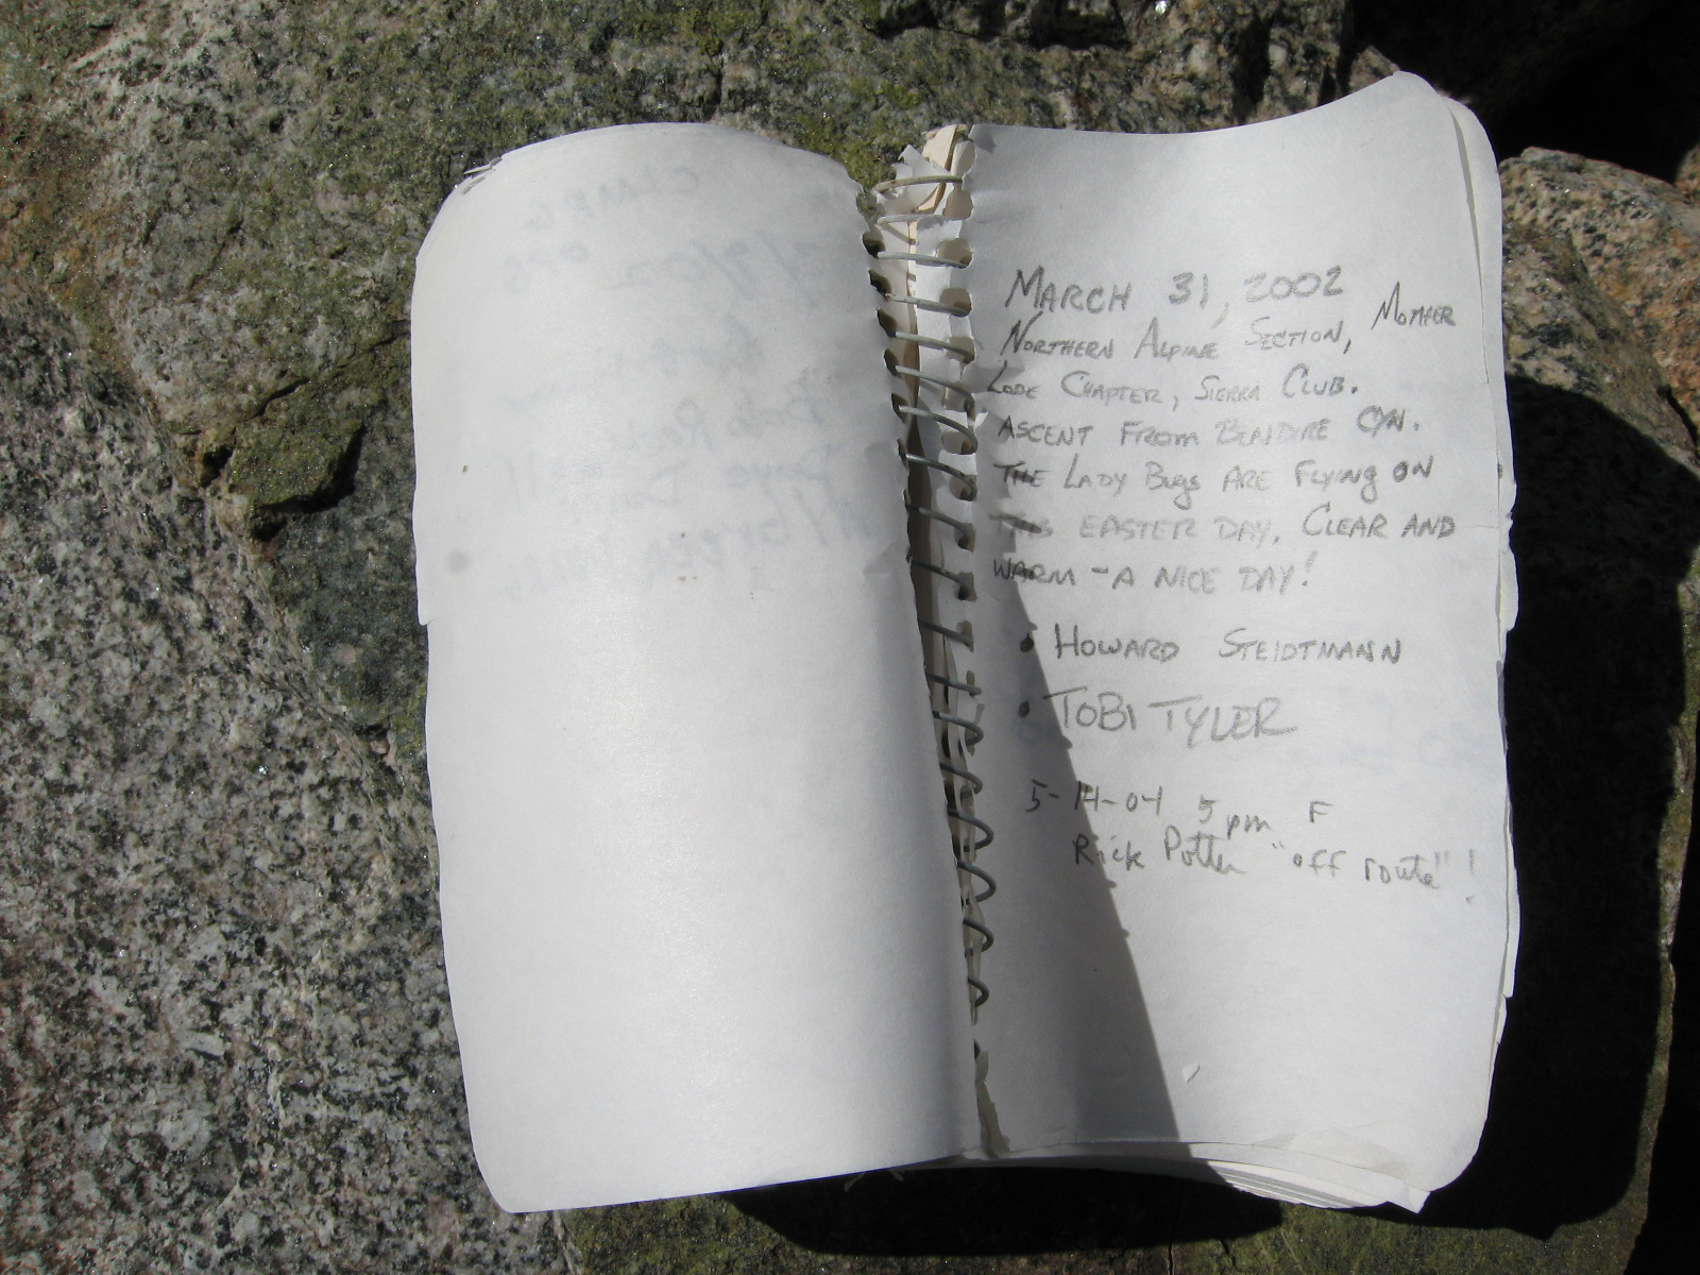 MARCH 31, 2002
NORTHERN ALPINE SECTION, MOTHER
LODE CHAPTER, SIERRA CLUB.
ASCENT FROM BENDIRE CYN.
THE LADY BUGS ARE FLYING ON
THIS EASTER DAY. CLEAR AND
WARM - A NICE DAY!
• HOWARD STEIDTMANN
• TOBI TYLER
5-14-04 5 pm F
Rick Potter "off route"!